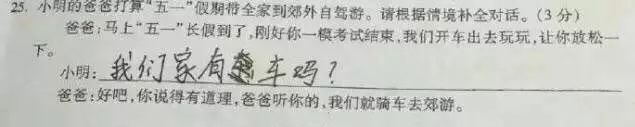 25. 小明的爸爸打算“五一”假期带全家到郊外自驾游。请根据情境补全对话。(3分)
爸爸:马上“五一”长假到了,刚好你一模考试结束,我们开车出去玩玩,让你放松一
下。
小明:我们家有车吗?
爸爸:好吧,你说得有道理,爸爸听你的,我们就骑车去郊游。